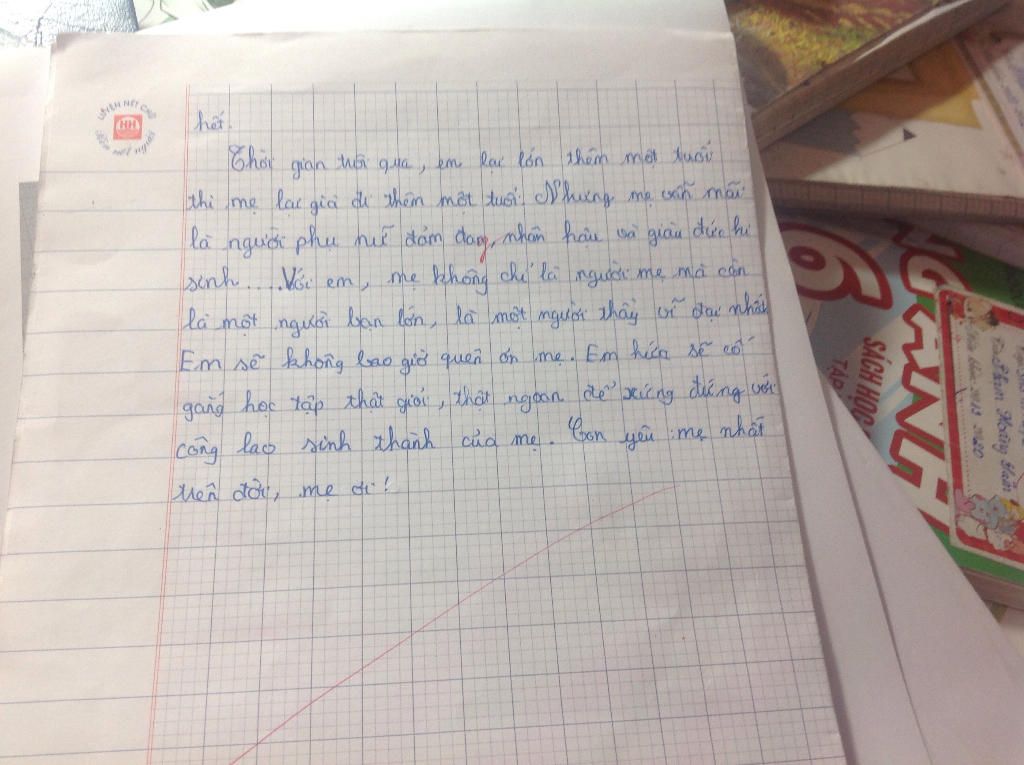 LUYỆN NÉT CHỮ
HH
rèn nết người
hết.
Thời gian trôi qua, em lại lớn thêm một tuổi
thì mẹ lại già đi thêm một tuổi. Nhưng mẹ vẫn mãi
là người phụ nữ đảm đang, nhân hậu và giàu đức hi
sinh....Với em, mẹ không chỉ là người mẹ mà còn
là một người bạn lớn, là một người thầy vĩ đại nhất.
Em sẽ không bao giờ quên ơn mẹ. Em hứa sẽ cố
gắng học tập thật giỏi, thật ngoan để xứng đáng với
công lao sinh thành của mẹ. Con yêu mẹ nhất
trên đời, mẹ ơi!
6
NG ANH
SÁCH HỌC
TẬP